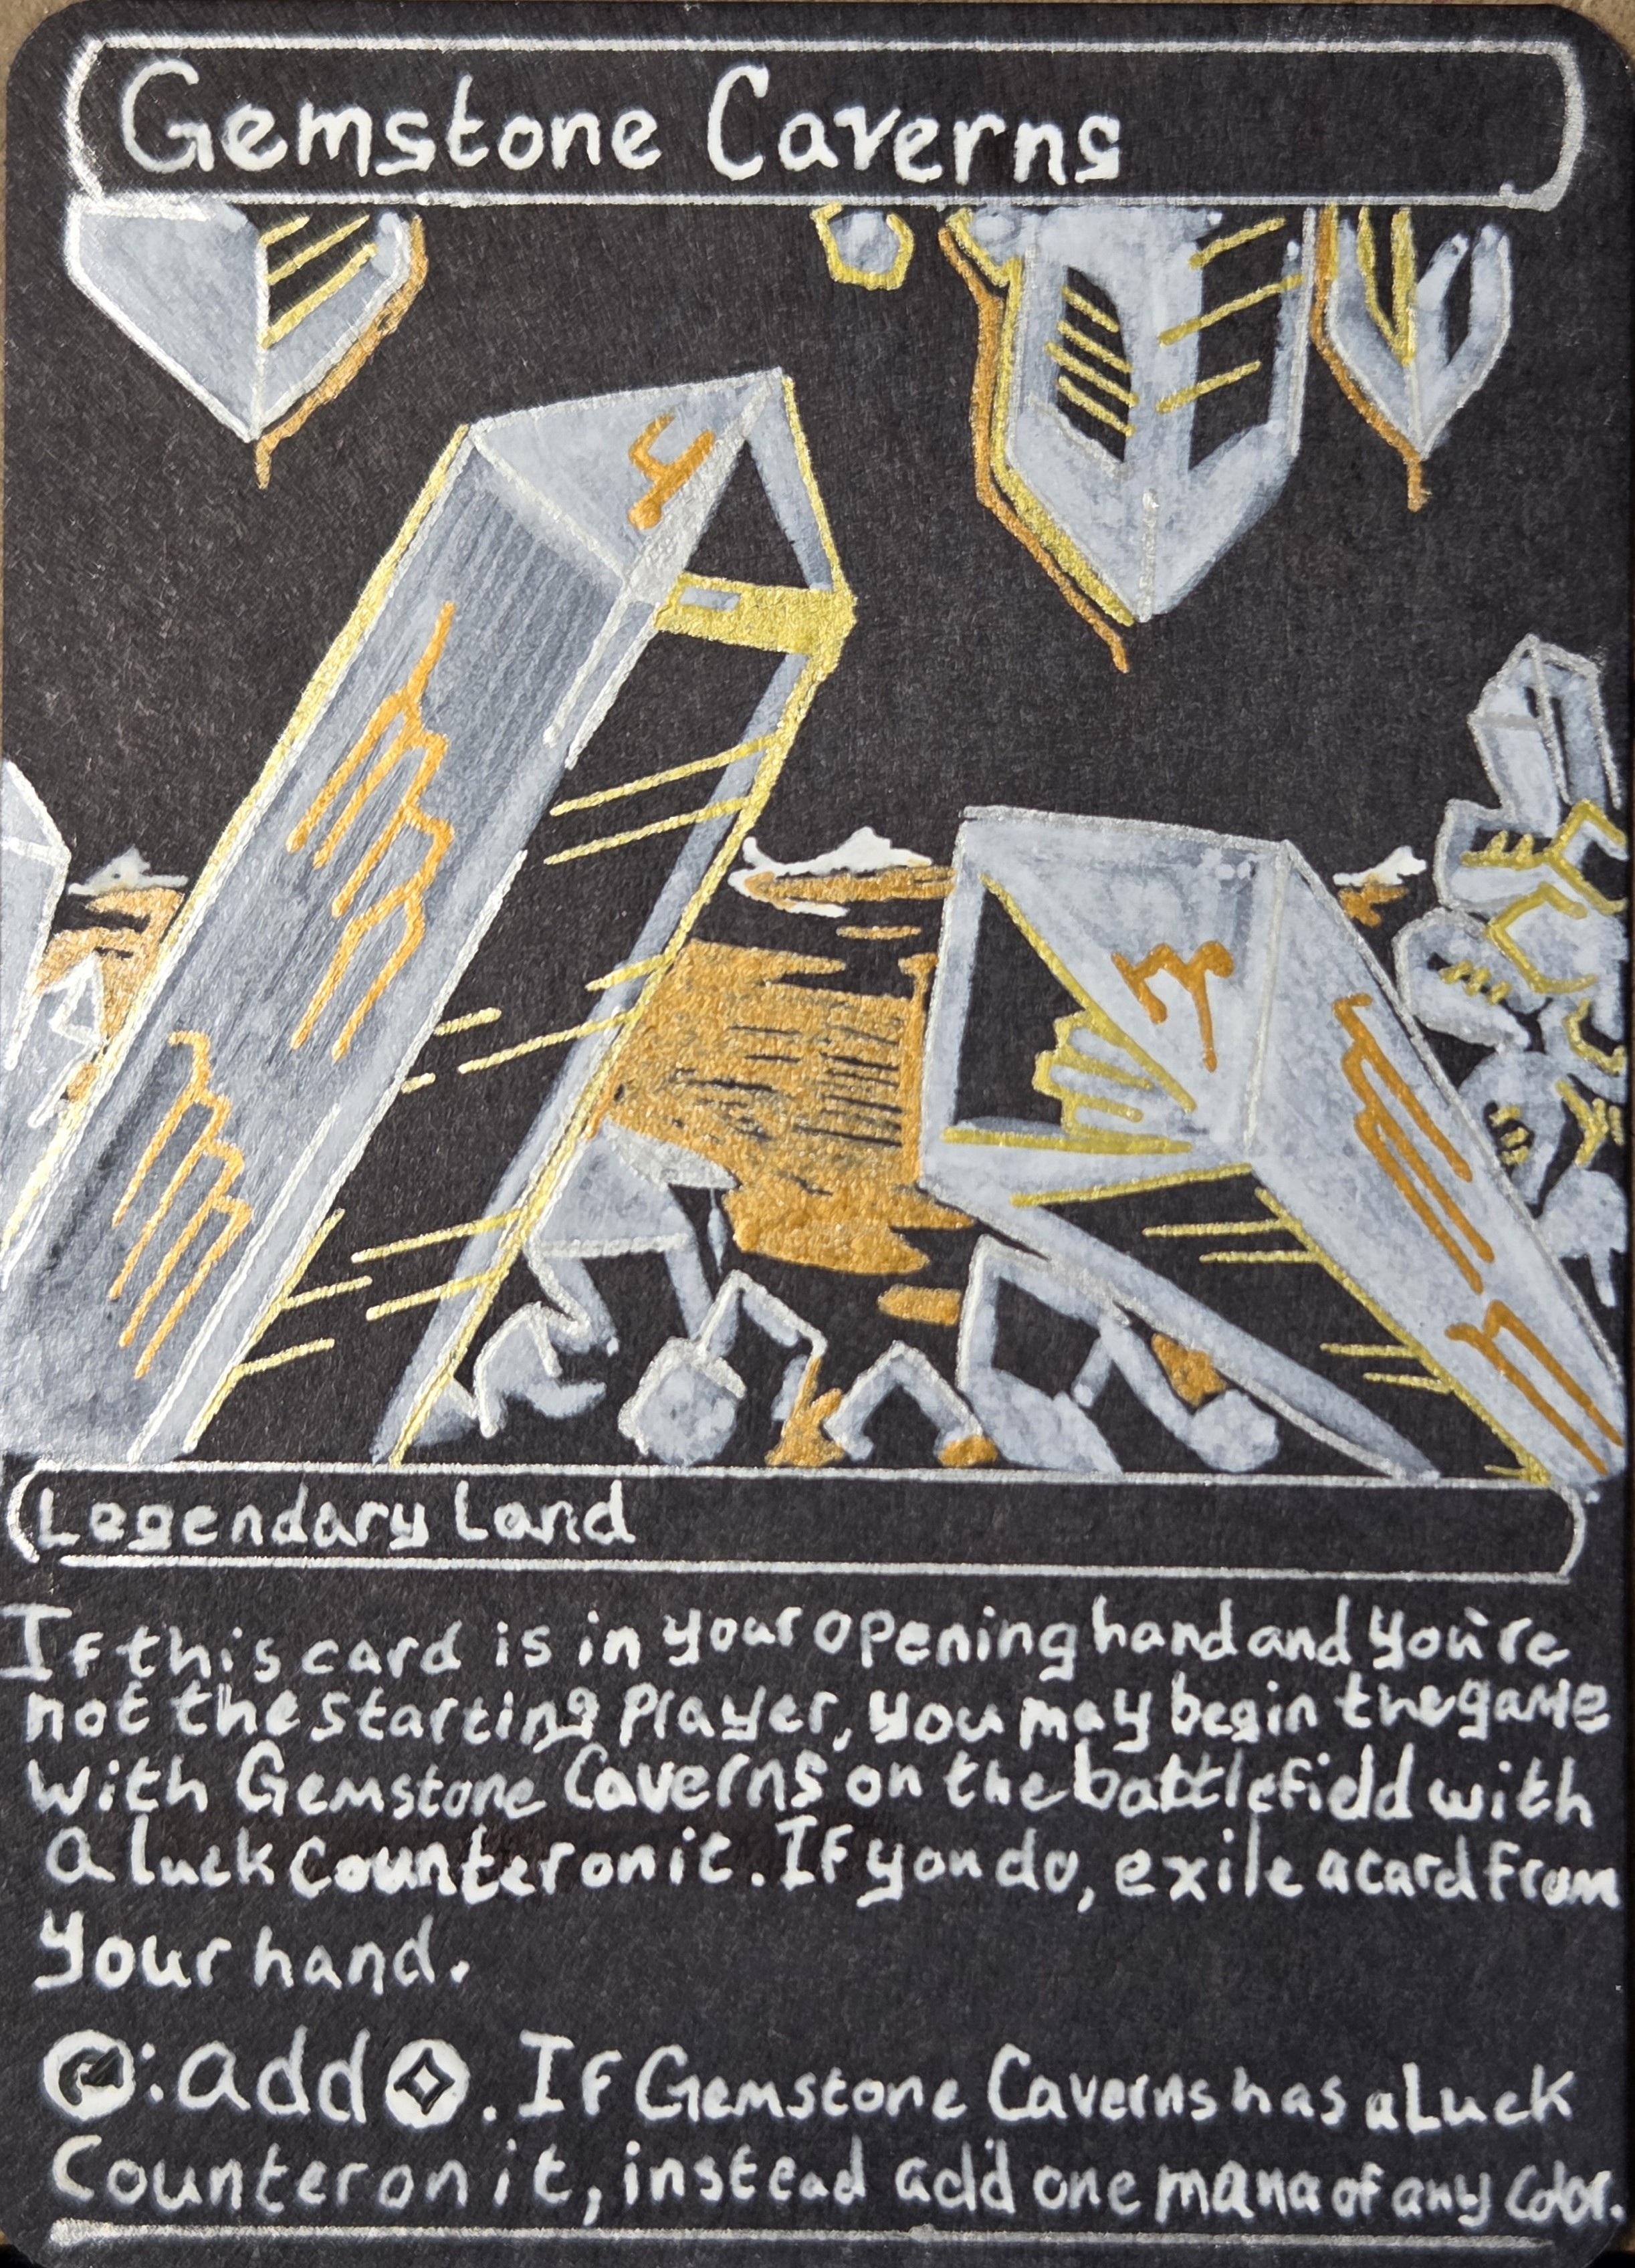 Gemstone Caverns
Legendary Land
If this card is in your opening hand and you're
not the starting player, you may begin the game
with Gemstone Caverns on the battlefield with
a luck counter on it. If you do, exile a card from
your hand.
: add . If Gemstone Caverns has a Luck
Counter on it, instead add one mana of any color.